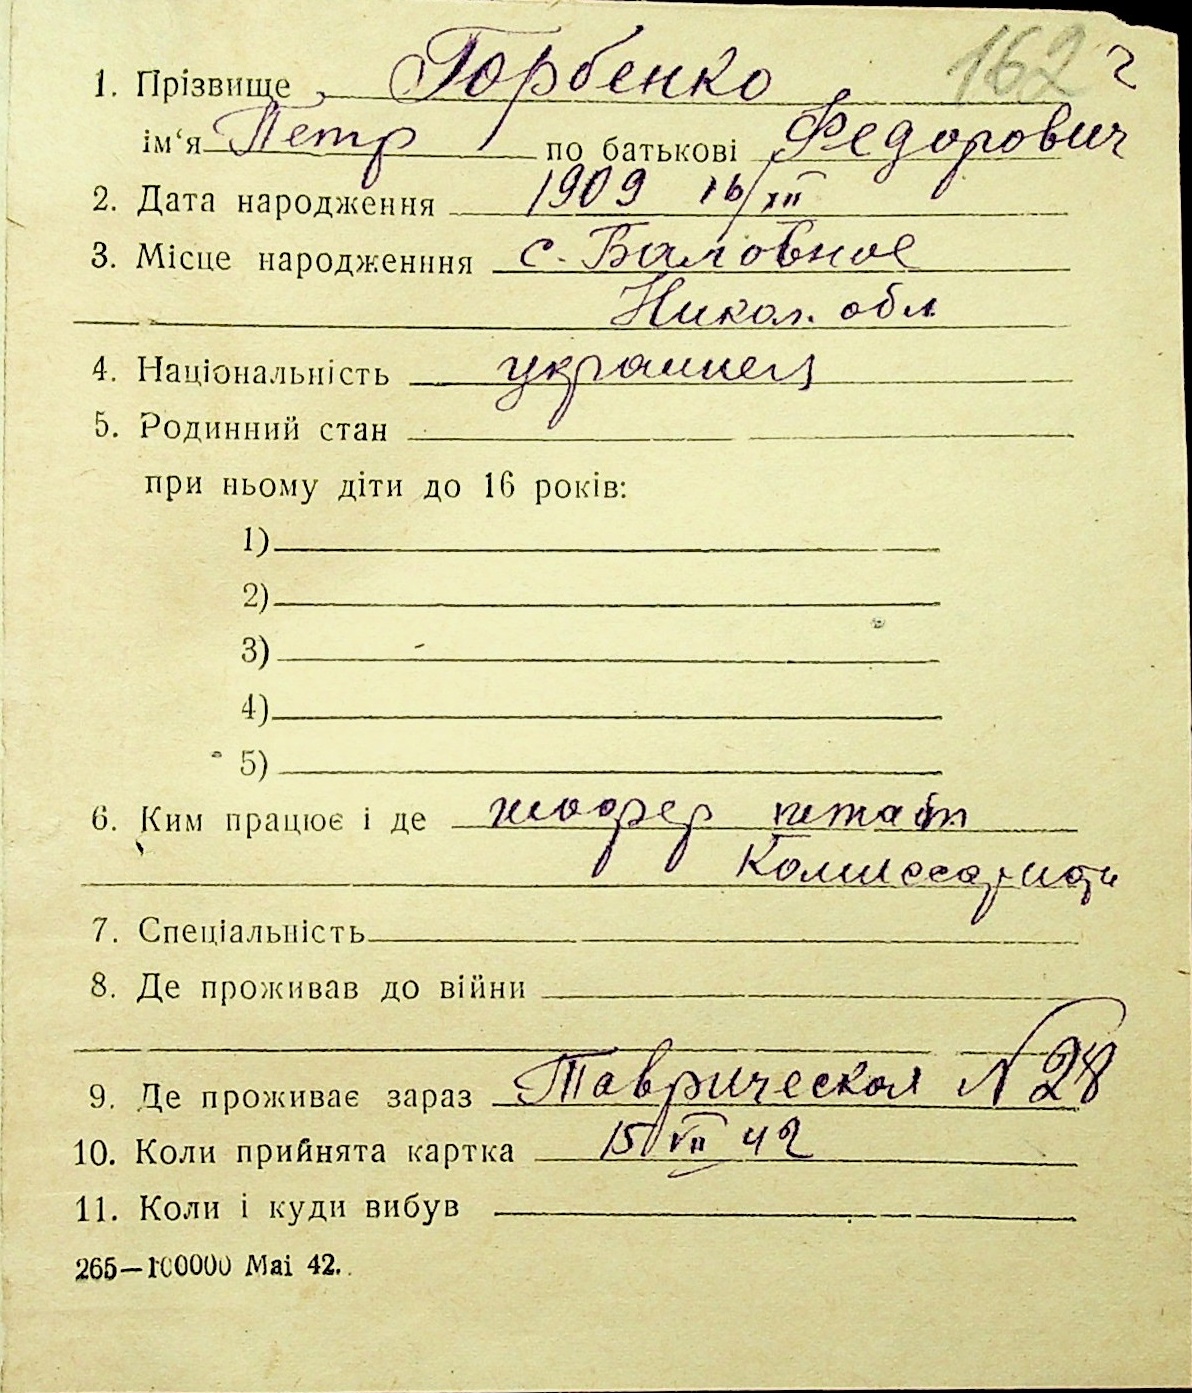 162 2
1. Прізвище Горбенко
ім‘я Петр по батькові Федорович
2. Дата народження 1909 16/XII
3. Місце народженння с. Баловное
Никол. обл
4. Національність украинец
5. Родинний стан
при ньому діти до 16 років:
1)
2)
3)
4)
5)
6. Ким працює і де шофер штат
Комиссариат
7. Спеціальність
8. Де проживав до війни
9. Де проживає зараз Таврическая N 28
10. Коли прийнята картка 15 VII 42
11. Коли і куди вибув
265—100000 Mai 42.